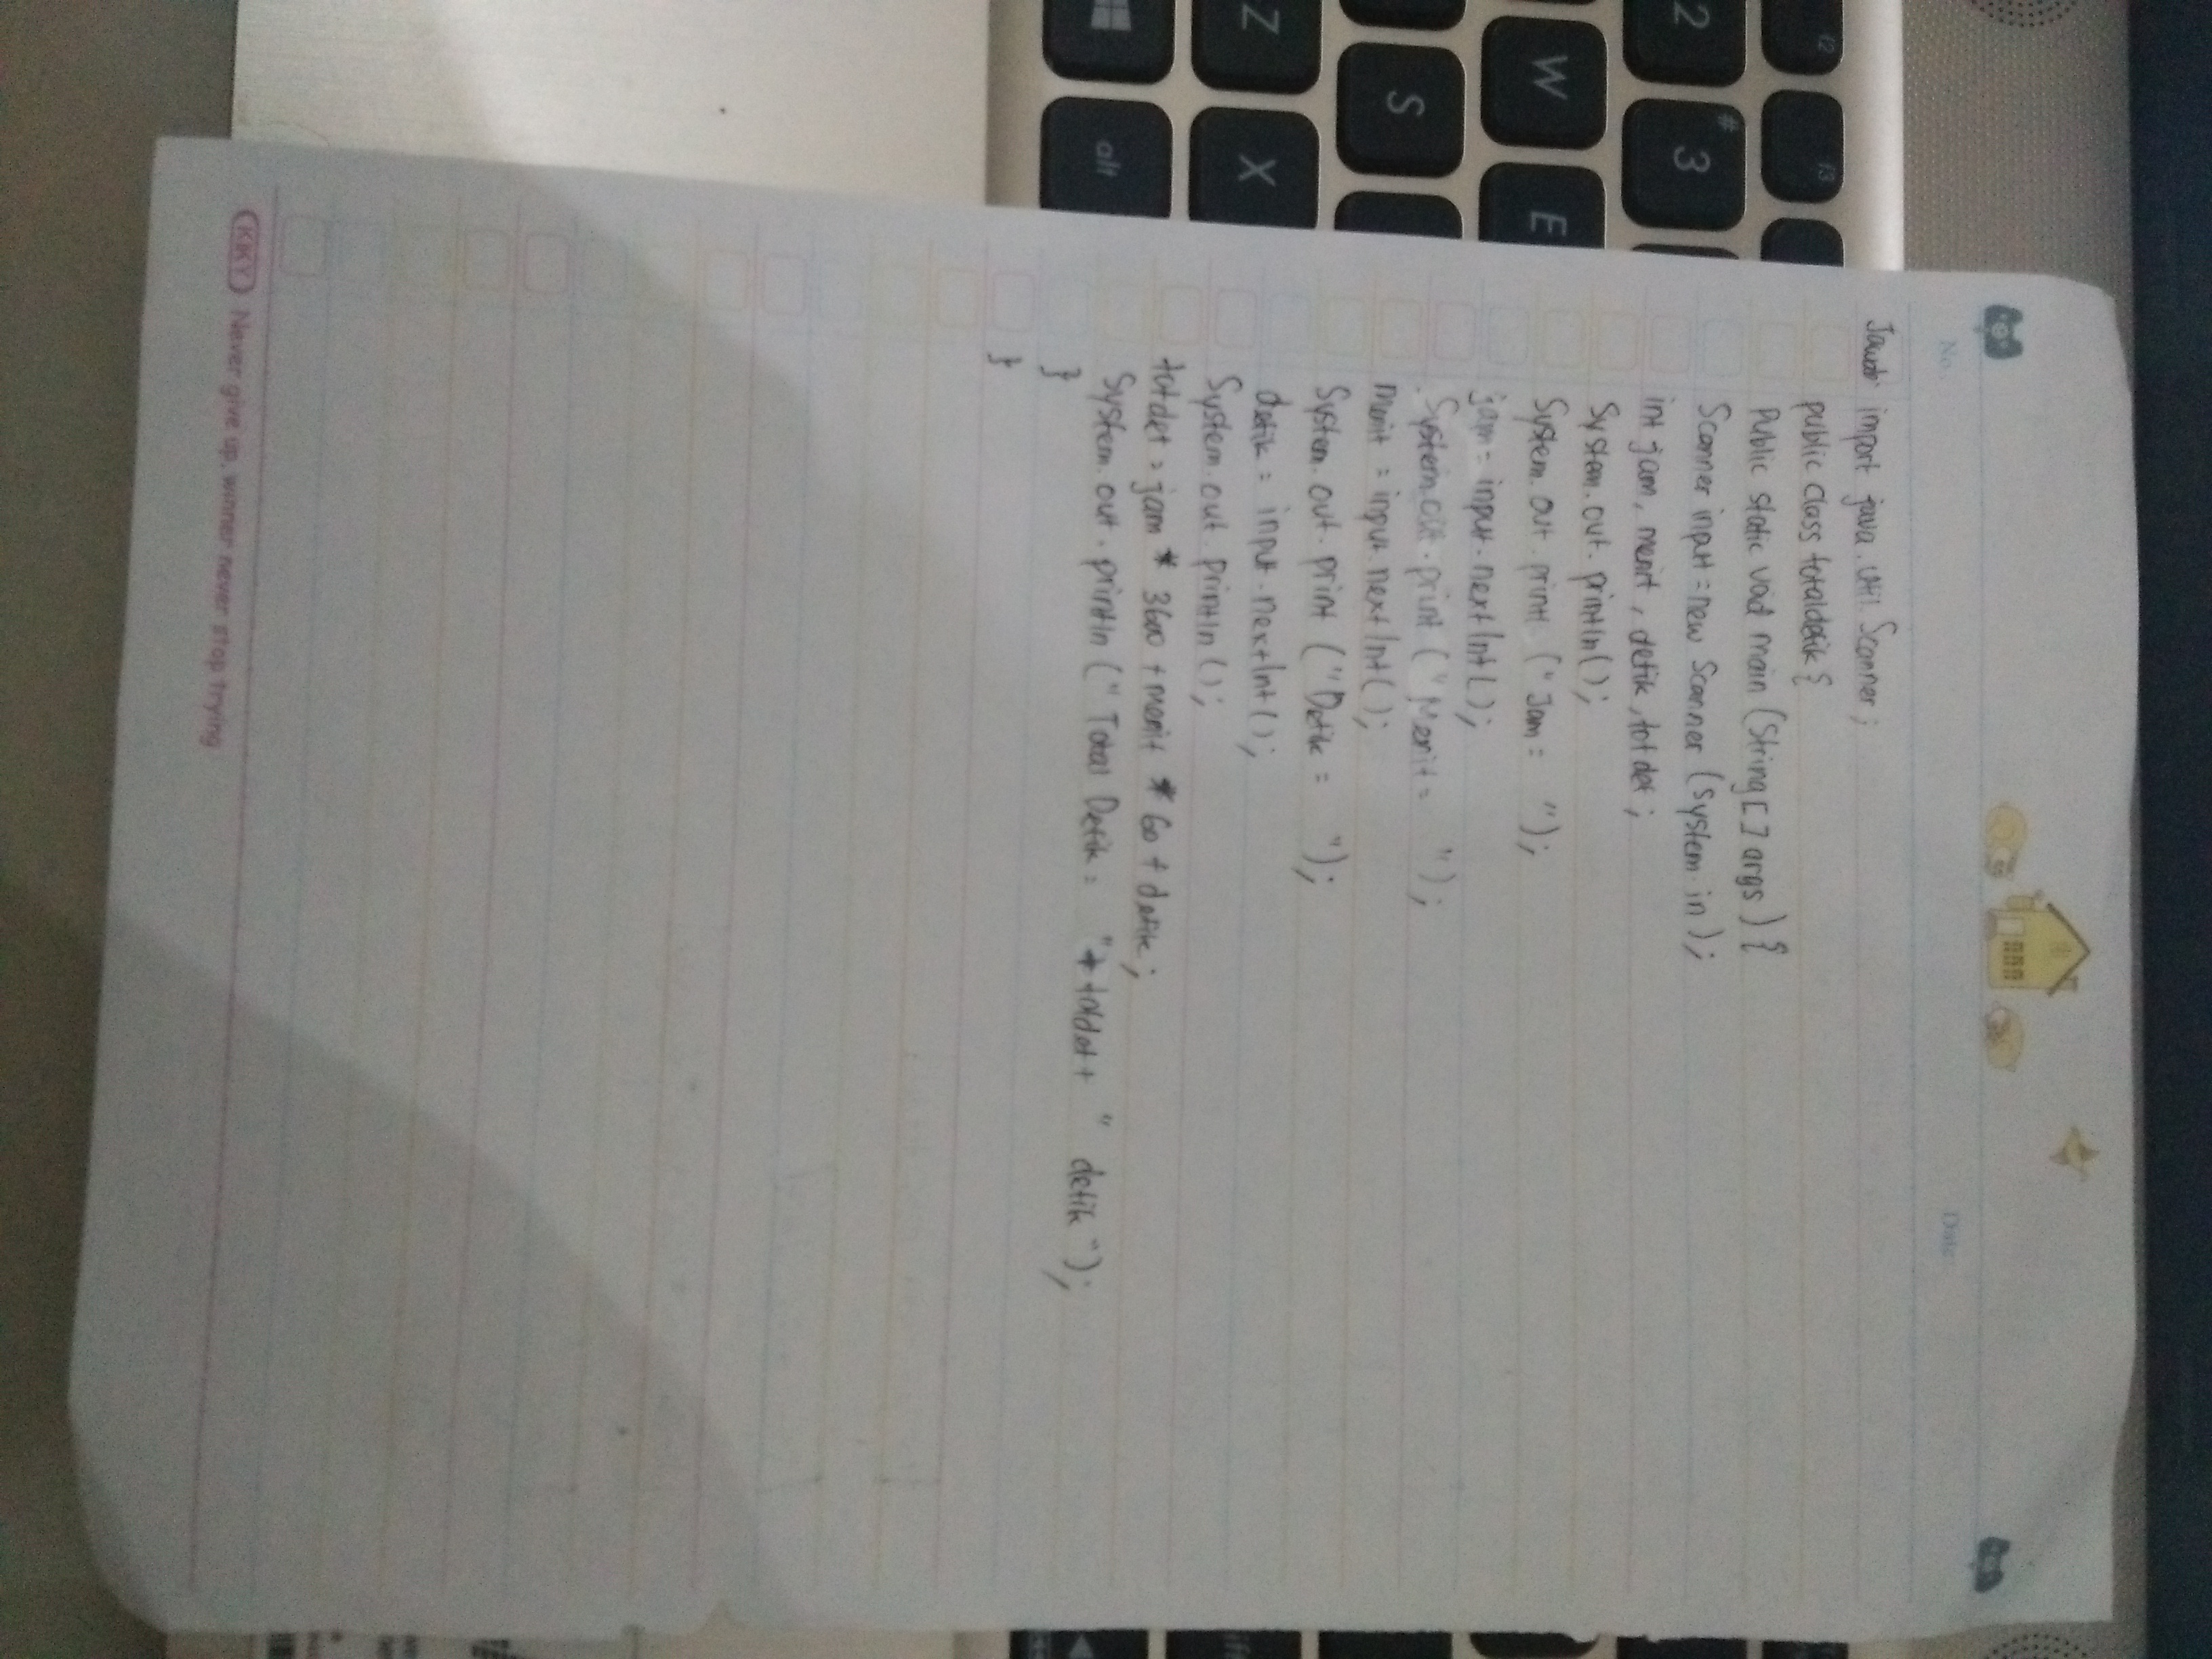 No.:
Date:
Jawab: import java.util.Scanner;
public class totaldetik {
Public static void main (String [ ] args ) {
Scanner input = new Scanner (System.in);
int jam, menit, detik, totdet;
System.out.println();
System.out.print ("Jam = ");
jam = input.nextInt();
System.out.print ("Menit = ");
menit = input.nextInt();
System.out.print ("Detik = ");
detik = input.nextInt();
System.out.println();
totdet = jam * 3600 + menit * 60 + detik;
System.out.println (" Total Detik = "+ totdet + " detik ");
}
}
KIKY Never give up, winner never stop trying
f2
f3
2
# 3
W
E
S
Z
X
alt